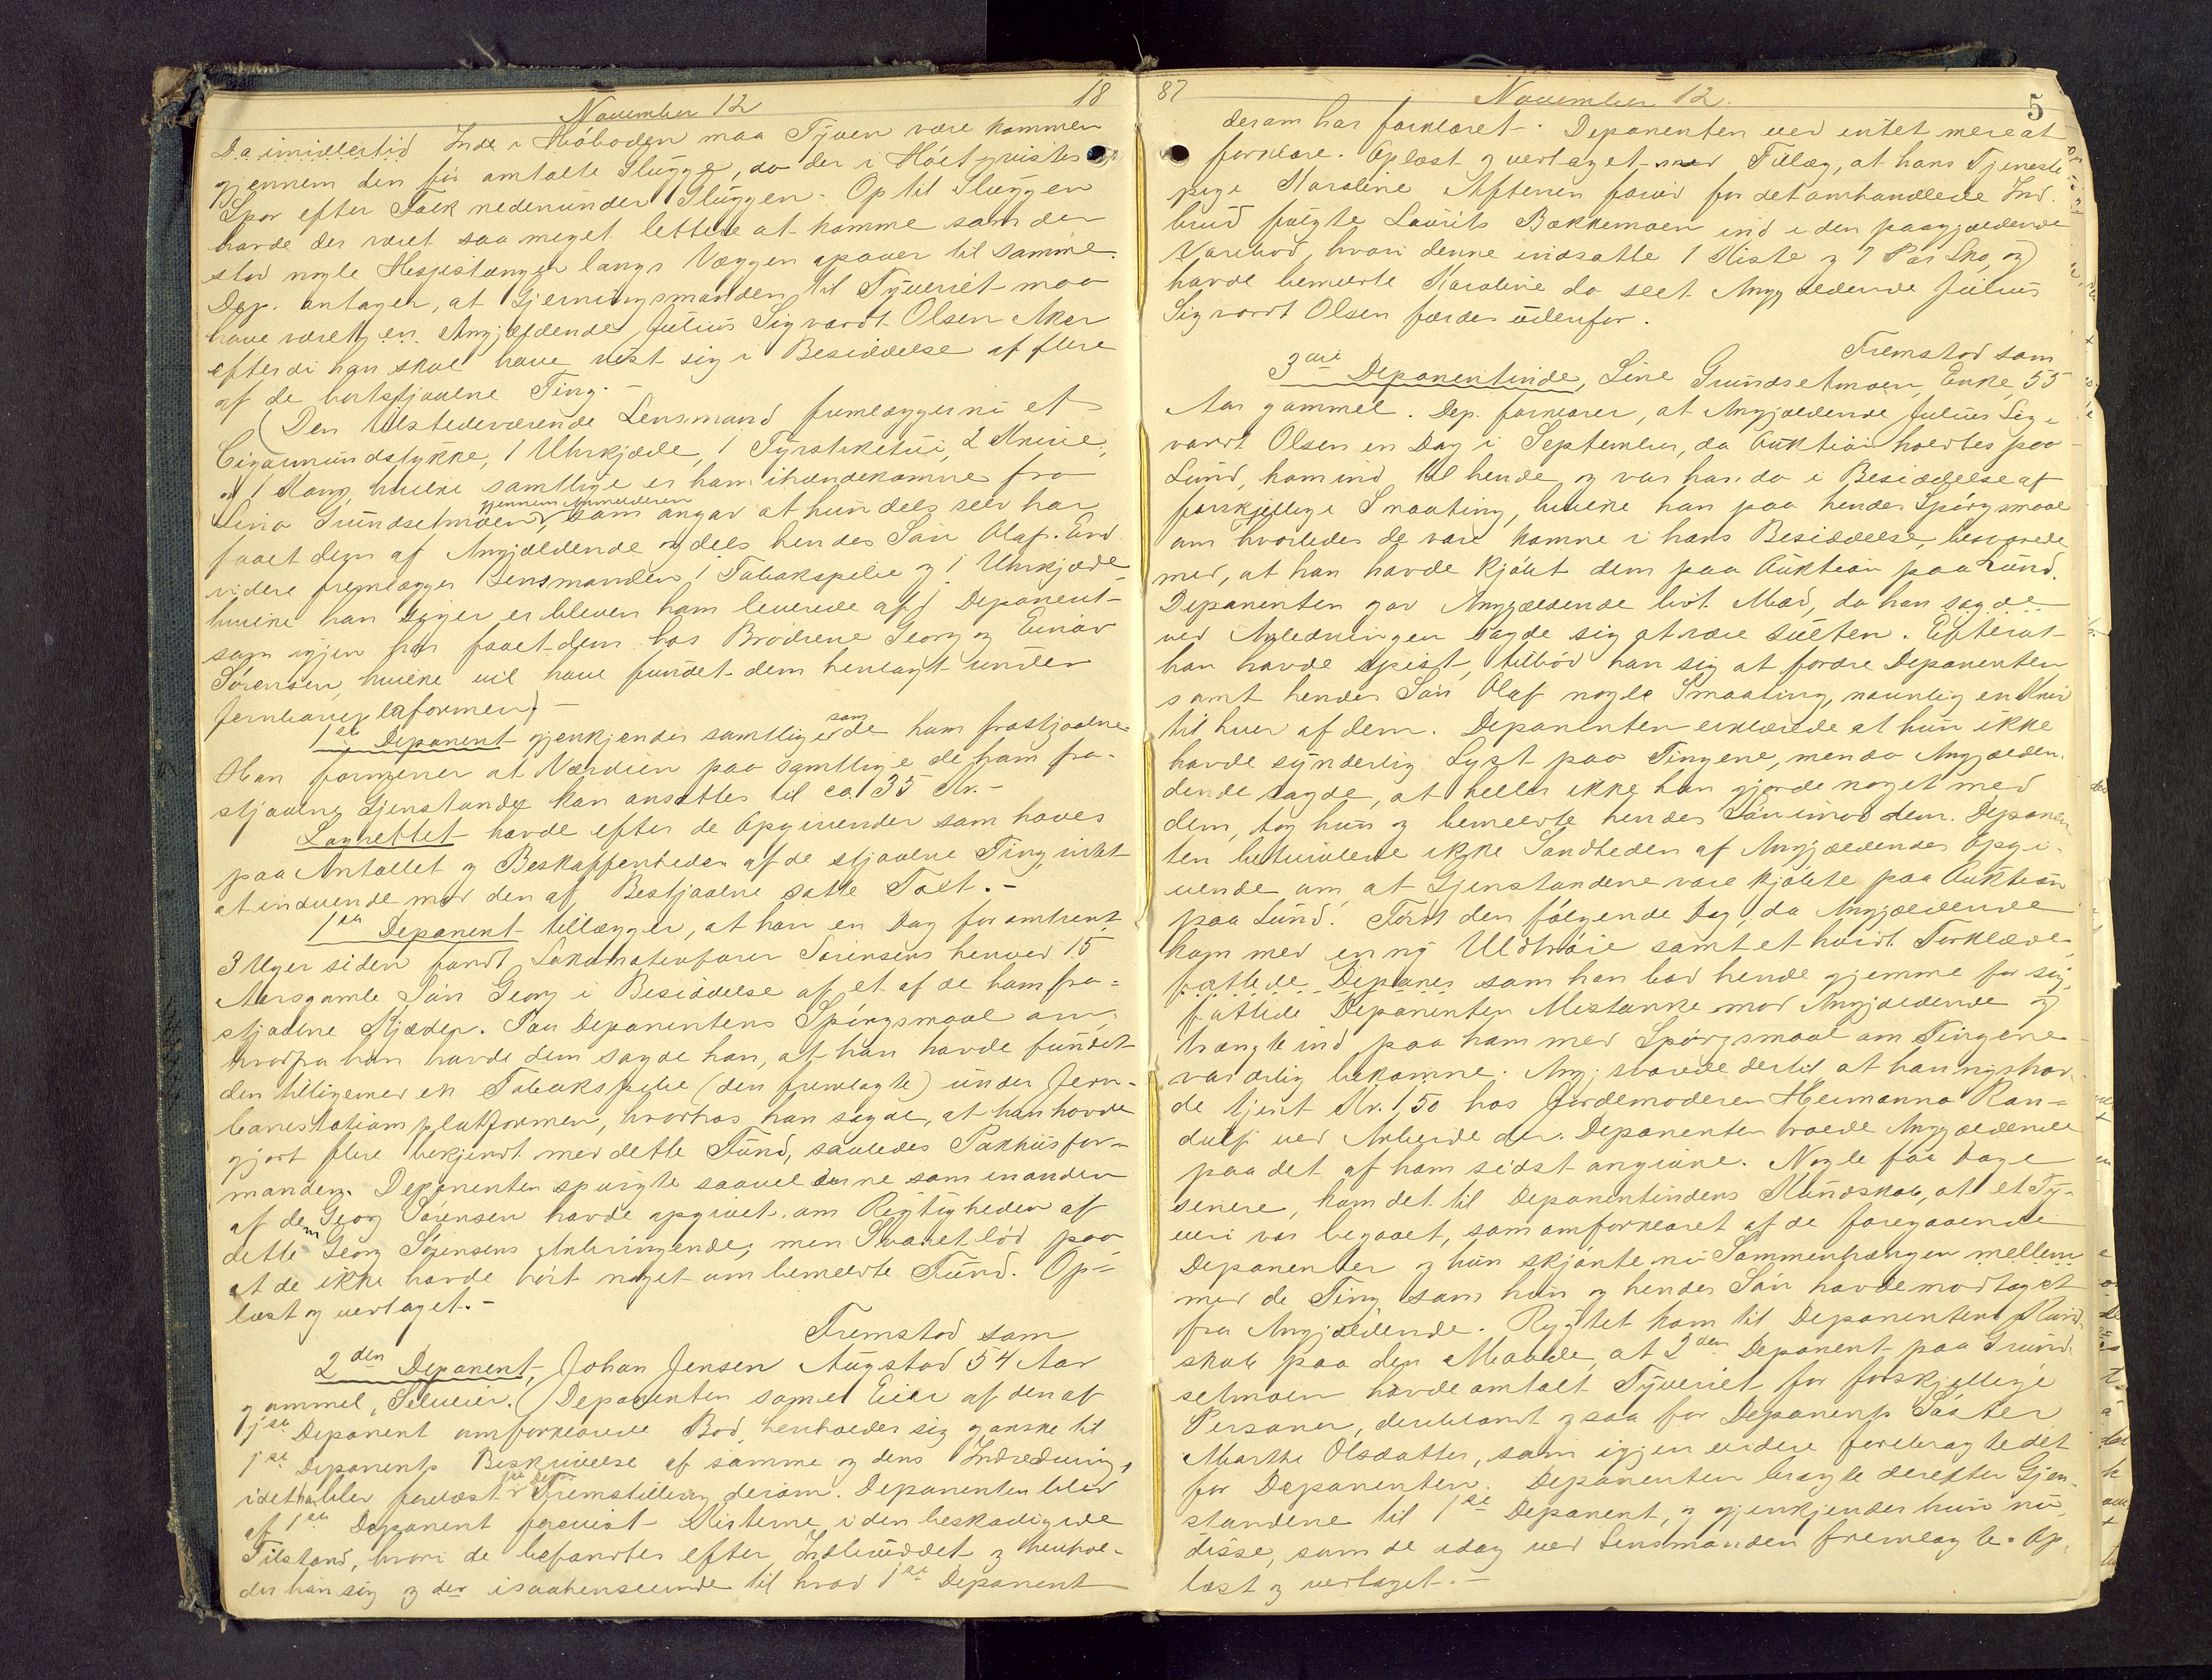 November 12
18
Da imidlertid Inde i Höboden maa Tyven være kommen
gjennem den før omtalte Glugge, da der i Höet vistes
Spor efter Folk nedenunder Gluggen. Op til Gluggen
havde der været saa meget lettere at komme som der
stod nogle Hesjestænger langs Væggen opover til samme.
Dep. antager, at Gjerningsmanden til Tyveriet maa
have været en Angjældende Julius Sigvardt Olsen Aker
efterdi han skal have vist sig i Besiddelse af flere
af de bortstjaalne Ting. -
(Den tilstedeværende Lensmand fremlægger nu et
Cigarmundstykke, 1 Uhrkjæde, 1 Fyrstiketui, 2 Knive,
og 1 Kam, hvilke samtlige er ham ihændekomne fra
gjennem Anmelderen
Lina Grundsetmoen, som angav at hun dels selv har
faaet dem af Angjældende og dels hendes Sön Olaf. End
videre fremlægger Lensmanden 1 Tobakspibe og 1 Uhrkjæde
hvilke han siger er bleven ham leverede af 1 Deponent-
som igjen har faaet dem hos Brödrene Georg og Einar
Sörensen, hvilke vil have fundet dem henlagt under
Jernbaneplatformen). -
som
1ste Deponent gjenkjender samtlige de ham frastjaalne
Han formener at Værdien paa samtlige de ham fra-
stjaalne Gjenstande kan ansættes til ca. 35 Kr. -
Lagrettet havde efter de Opgivender som haves
paa Antallet og Beskaffenheden af de stjaalne Ting intet
at indvende mod den af Bestjaalne satte Taxt. -
1ste Deponent tillægger, at han en Dag for omtrent
3 Uger siden fandt Lokomotivfører Sörensens henved 15
Aarsgamle Sön Georg i Besiddelse af et af de ham fra-
stjaalne Kjæder. Paa Deponentens Spörgsmaal om,
hvorfra han havde dem sagde han, at han havde fundet
den tilligemed en Tobakspibe (den fremlagte) under Jern-
banestationsplatformen, hvorhos han sagde, at han havde
gjort flere bekjendt med dette Fund, saaledes Pakhusfor-
manden. Deponenten spurgte saavel denne som en anden
af dem Georg Sörensen havde opgivet om Rigtigheden af
dette Georg Sörensens Anbringende, men Svaret löd paa
at de ikke havde hört noget om bemeldte Fund. Op-
læst og vedtaget. -
Fremstod som
2den Deponent, Johan Jensen Augstad 54 Aar
gammel, Selveier. Deponenten som er Eier af den af
1ste Deponent omforklarede Bod, henholder sig ganske til
1ste Deponents Beskrivelse af samme og dens Indredning,
1ste Dep.
idet han blev forelæst Fremstilling derom. Deponenten blev
af 1ste Deponent forevist Kisterne i den beskadigede
Tilstand, hvori de befandtes efter Indbruddet og henhol-
der han sig og der isaahenseende til hvad 1ste Deponent
87
November 12.
5
derom har forklaret. Deponenten ved intet mere at
forklare. Oplæst og vedtaget med Tillæg, at hans Tjeneste
pige Karoline Aftenen forud for det omhandlede Ind-
brud fulgte Laurits Bakkemoen ind i den paagjældende
Varebod, hvori denne indsatte 1 Kiste og 7 Par Sko, og
havde bemeldte Karoline da seet Angjældende Julius
Sigvardt Olsen færdes udenfor.
Fremstod som
3die Deponentinde, Line Grundsetmoen, Enke, 55
Aar gammel. Dep. forklarer, at Angjældende Julius Sig-
vardt Olsen en Dag i September, da Auktion holdtes paa
Lund, kom ind til hende og var han da i Besiddelse af
forskjellige Smaating, hvilke han paa hendes Spörgsmaal
om hvorledes de vare komne i hans Besiddelse, besvarede
med, at han havde kjöbt dem paa Auktion paa Lund.
Deponenten gav Angjældende lidt Mad, da han sagde
ved Anledningen sagde sig at være sulten. Efterat
han havde spist, tilböd han sig at forære Deponenten
samt hendes Sön Olaf nogle Smaating, navnlig en Kniv
til hver af dem. Deponenten erklærede at hun ikke
havde synderlig Lyst paa Tingene, men da Angjælden-
dende sagde, at heller ikke han gjorde noget med
dem, tog hun og bemeldte hendes Sön imod dem. Deponen-
ten betvivlede ikke Sandheden af Angjældendes Opgi-
vende om at Gjenstandene vare kjöbte paa Auktion
paa Lund. Först den fölgende Dag, da Angjældende
kom med en ny Uldtröie samt et hvidt Forklæde,
fattede Depones som han bad hende gjemme for sig,
fattede Deponenten Mistanke mod Angjældende og
trængte ind paa ham med Spörgsmaal om Tingene
var ærlig bekomne. Angj. svarede dertil at han nys hav-
de tjent Kr. 1,50 hos Jordemoderen Hermanna Ran-
dulf ved Arbeide der. Deponenten troede Angjældende
paa det af ham sidst angivne. Nogle faa Dage
senere, kom det til Deponentindens Kundskab, at et Ty-
veri var begaaet, som omforklaret af de foregaaende
Deponenter og hun skjönte nu Sammenhængen mellem
med de Ting som hun og hendes Sön havde modtaget
fra Angjældende. Rygtet kom til Deponentens Kund-
skab paa den Maade, at 2den Deponent paa Grund-
setmoen havde omtalt Tyveriet for forskjellige
Personer, deriblandt ogsaa for Deponents Söster
Marthe Olsdatter, som igjen videre forebragte det
for Deponenten. Deponenten bragte derefter Gjen-
standene til 1ste Deponent, og gjenkjender hun nu
disse, som de idag ved Lensmanden fremlagte. Op-
læst og vedtaget. -